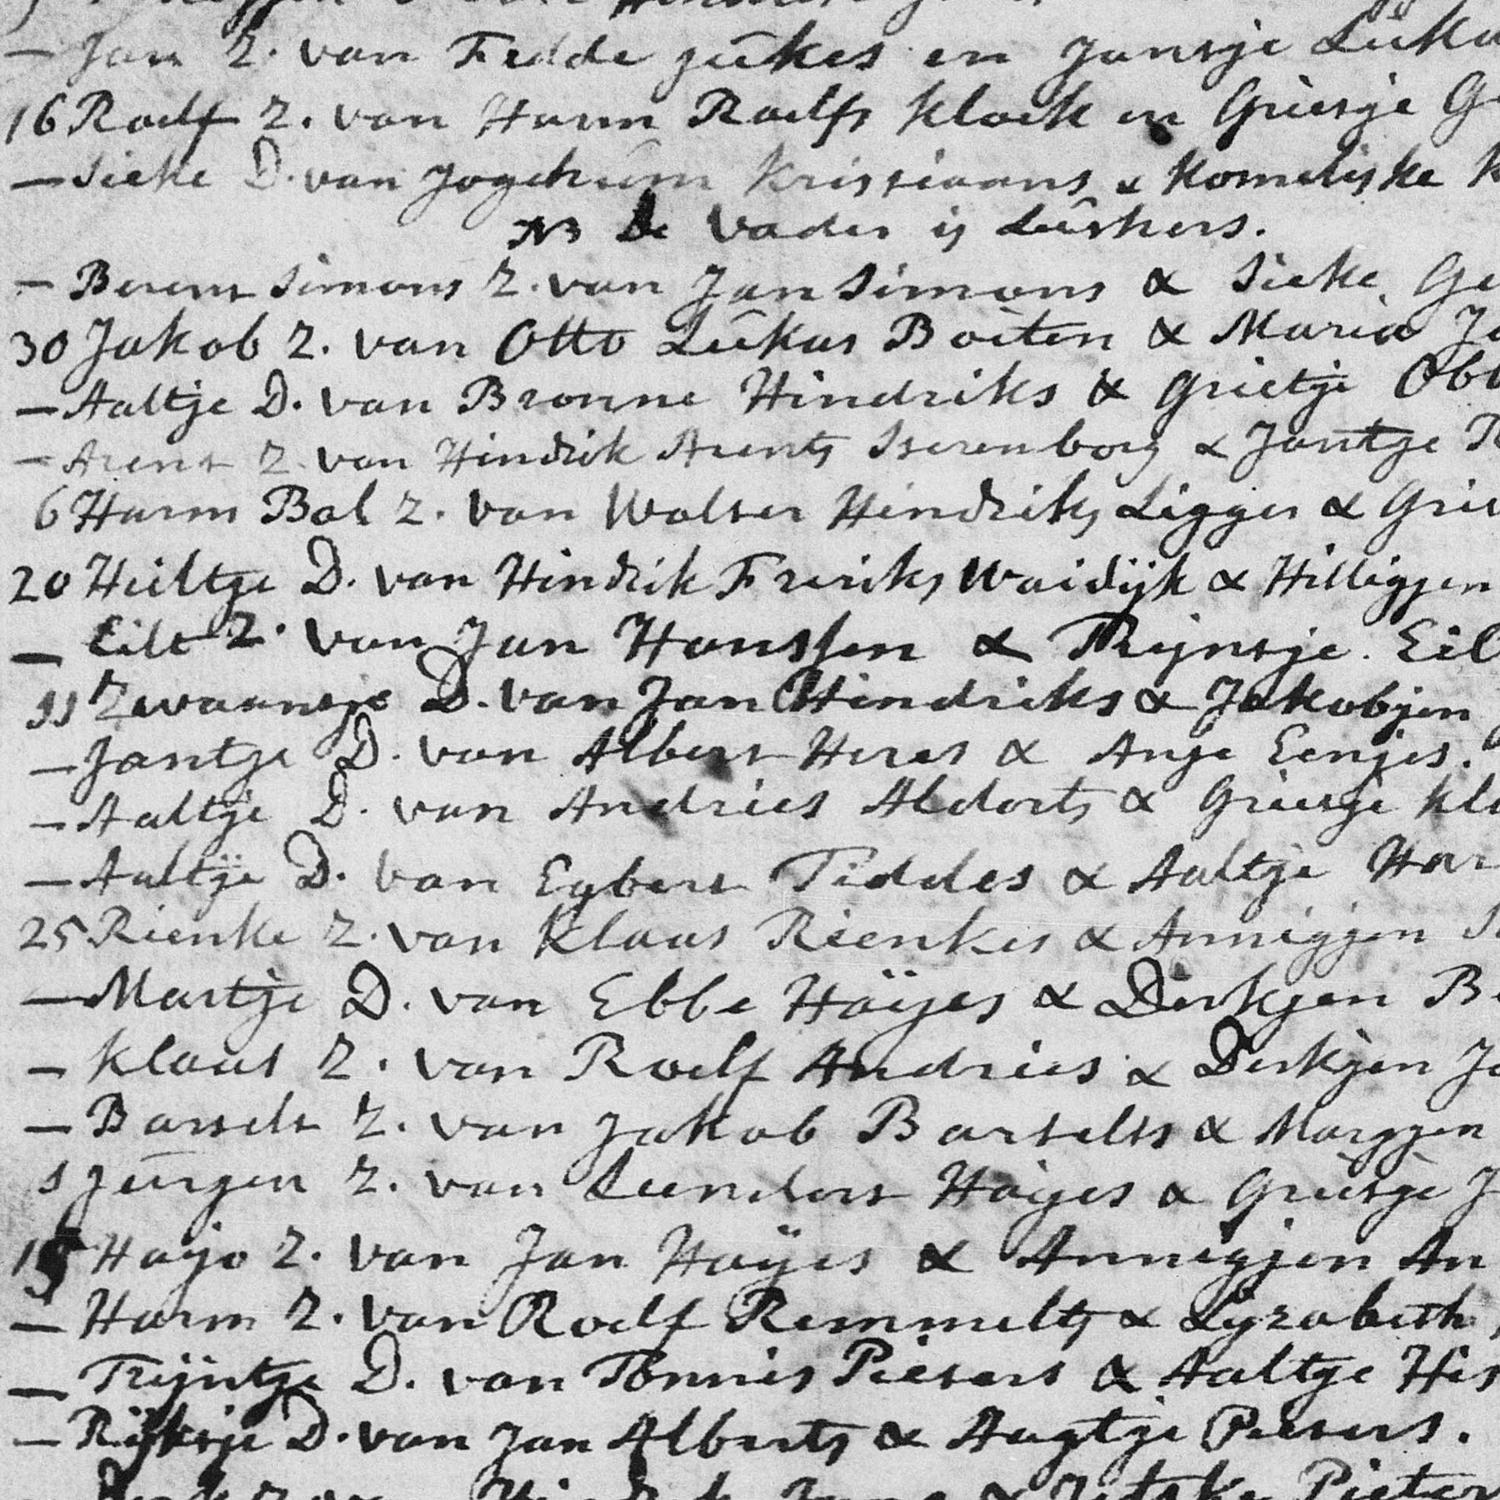 — Jan Z. van Fedde jukes en Jantje Luka
16 Roelf Z. van Harm Roelfs Klock en Grietje Ge
— Sieke D. van Jogchum Kristiaans & Korneliske K
NB De Vader is Luthers.
— Berent Simons Z. van Jan Simons & Sieke Ge
30 Jakob Z. van Otto Lukas Boiten & Maria Ja
— Aaltje D. van Bronne Hindriks & Grietje Obb
— Arent Z. van Hindrik Arents Iserenborg & Jantje R
6 Harm Bal Z. van Wolter Hindriks Ligger & Grie
20 Heiltje D. van Hindrik Freriks Waidijk & Hilligjen
— Eilt Z. van Jan Hanssen & Trijntje Eil
11 Zwaantje D. van Jan Hindriks & Jakobjen
— Jantje D. van Albert Heres & Anje Eenjes.
— Aaltje D. van Andries Aldorts & Grietje Klo
— Aaltje D. van Egbert Tiddes & Aaltje Har
25 Rienke Z. van Klaas Rienkes & Annigjen
— Martje D. van Ebbe Haijes & Derkjen Be
— Klaas Z. van Roelf Andries & Derkjen Ja
— Bartelt Z. van Jakob Bartelts & Margjen
1 Jurgen Z. van Leendert Haijes & Grietje J
15 Hayo Z. van Jan Haijes & Annigjen An
— Harm Z. van Roelf Remmelts & Lyzabeth
— Trijntje D. van Tonnis Pieters & Aaltje His
— Rijktje D. van Jan Alberts & Aagtje Pieters.
Z. van Hindrik Jans & Jetske Pieter